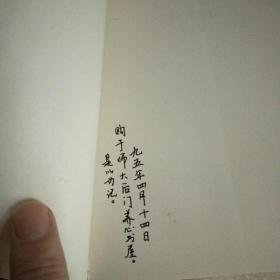 九五年四月十四日
购于师大后门养心书屋。
是以为记。